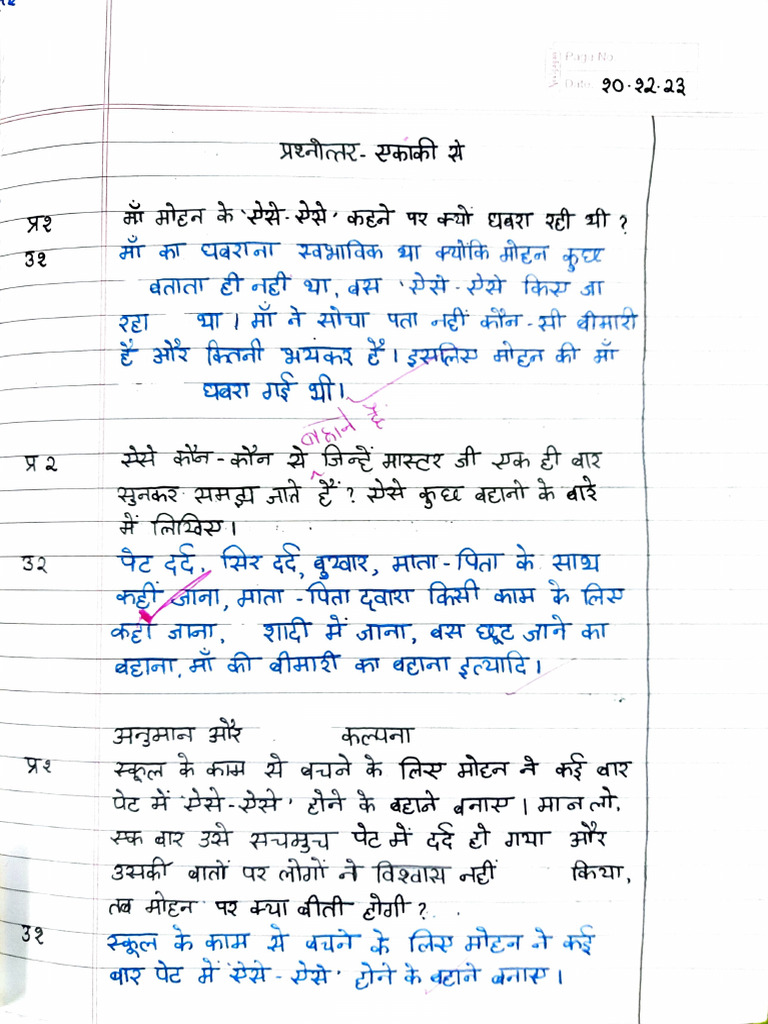 Page No
Date: १०.१२.२३
प्रश्नोत्तर- एकांकी से
प्र१ माँ मोहन के 'ऐसे-ऐसे' कहने पर क्यों घबरा रही थी ?
उ१ माँ का घबराना स्वभाविक था क्योंकि मोहन कुछ
बताता ही नही था, बस 'ऐसे - ऐसे किए जा
रहा था । माँ ने सोचा पता नहीं कौन-सी बीमारी
है और कितनी भयंकर है । इसलिए मोहन की माँ
घबरा गई थी ।
बहाने है
प्र २ ऐसे कौन-कौन से जिन्हें मास्टर जी एक ही बार
सुनकर समझ जाते हैं ? ऐसे कुछ बहानो के बारे
में लिखिए ।
उ२ पेट दर्द, सिर दर्द, बुखार, माता-पिता के साथ
कहीं जाना, माता -पिता द्वारा किसी काम के लिए
कहीं जाना, शादी में जाना, बस छूट जाने का
बहाना, माँ की बीमारी का बहाना इत्यादि ।
अनुमान और कल्पना
प्र१ स्कूल के काम से बचने के लिए मोहन ने कई बार
पेट में 'ऐसे-ऐसे' होने के बहाने बनाए । मान लो,
एक बार उसे सचमुच पेट में दर्द हो गया और
उसकी बातों पर लोगों ने विश्वास नहीं किया,
तब मोहन पर क्या बीती होगी ?
उ१ स्कूल के काम से बचने के लिए मोहन ने कई
बार पेट में 'ऐसे - ऐसे' होने के बहाने बनाए ।